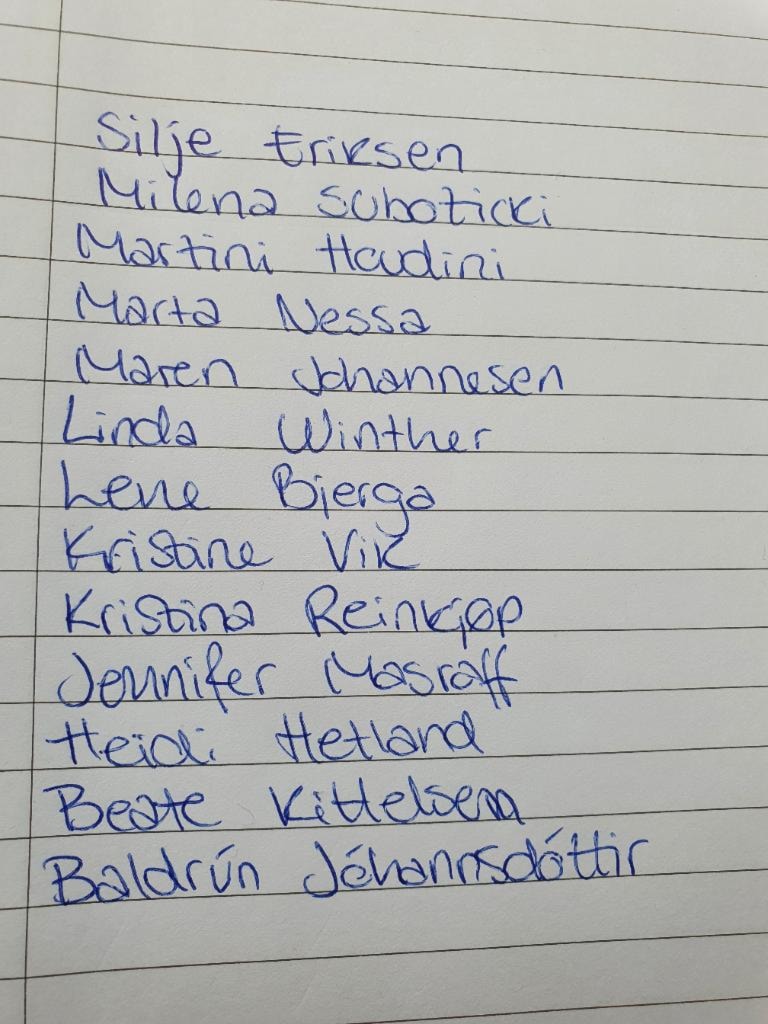 Silje Eriksen
Milena Suboticki
Martini Houdini
Marta Nessa
Maren Johannesen
Linda Winther
Lene Bjerga
Kristine Vik
Kristina Reinkjøp
Jennifer Masraff
Heidi Hetland
Beate Kittelsen
Baldrún Jóhannsdóttir